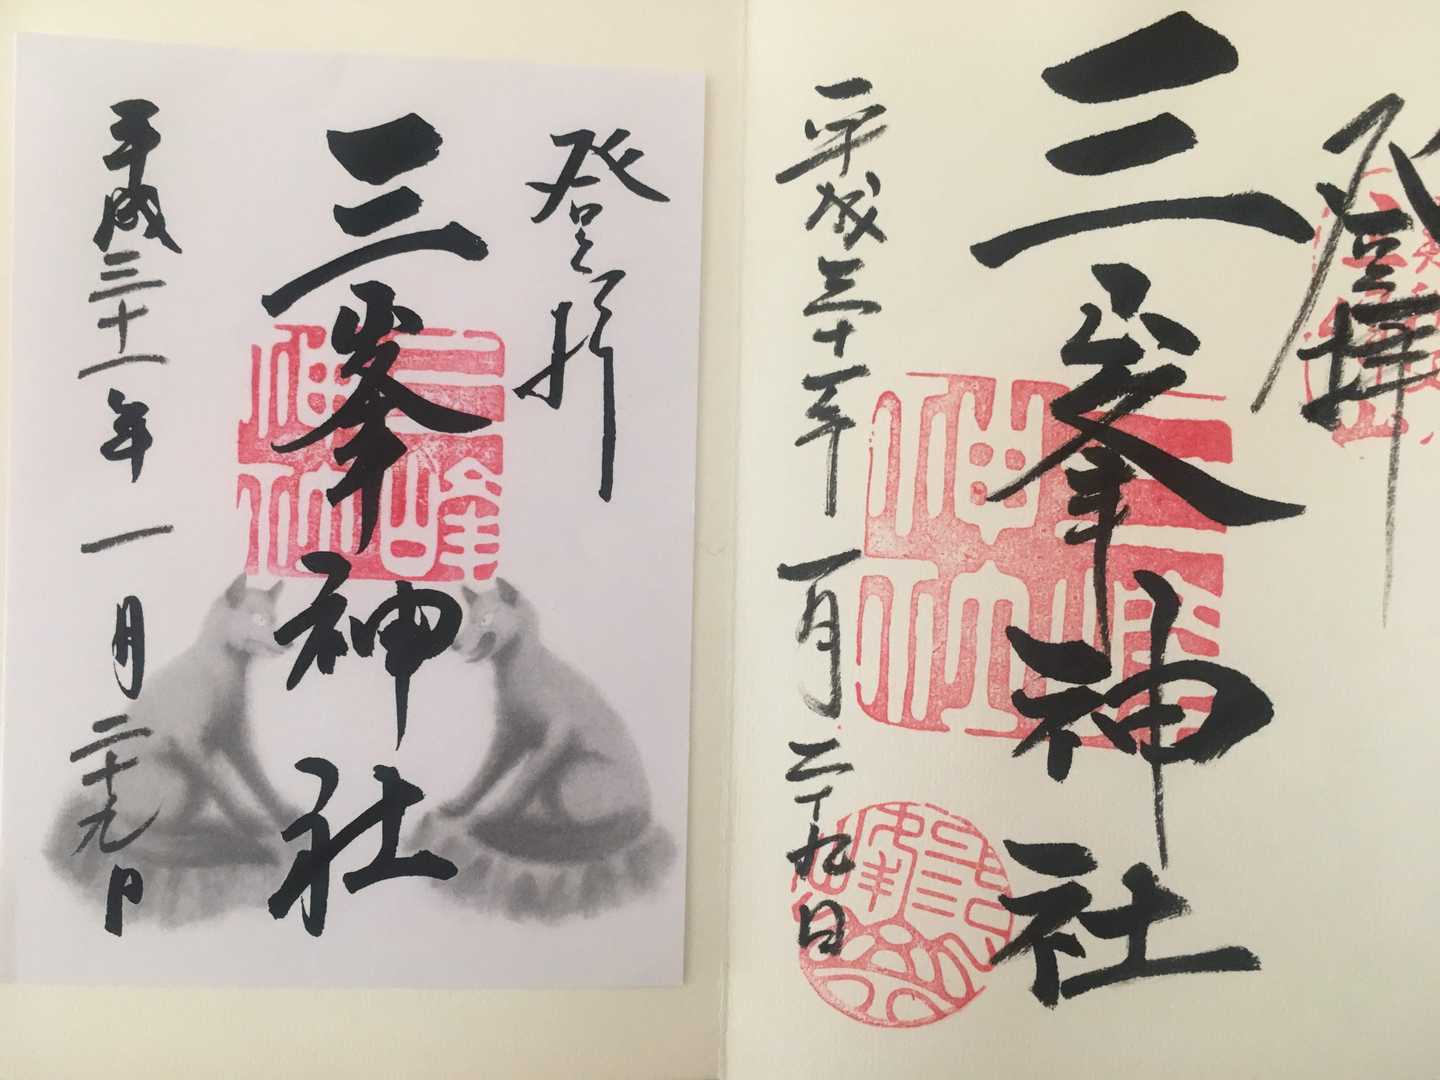 登拝
三峯神社
三峰
神社
平成三十一年一月二十九日
登拝
三峯神社
三峰
神社
平成三十一年一月二十九日